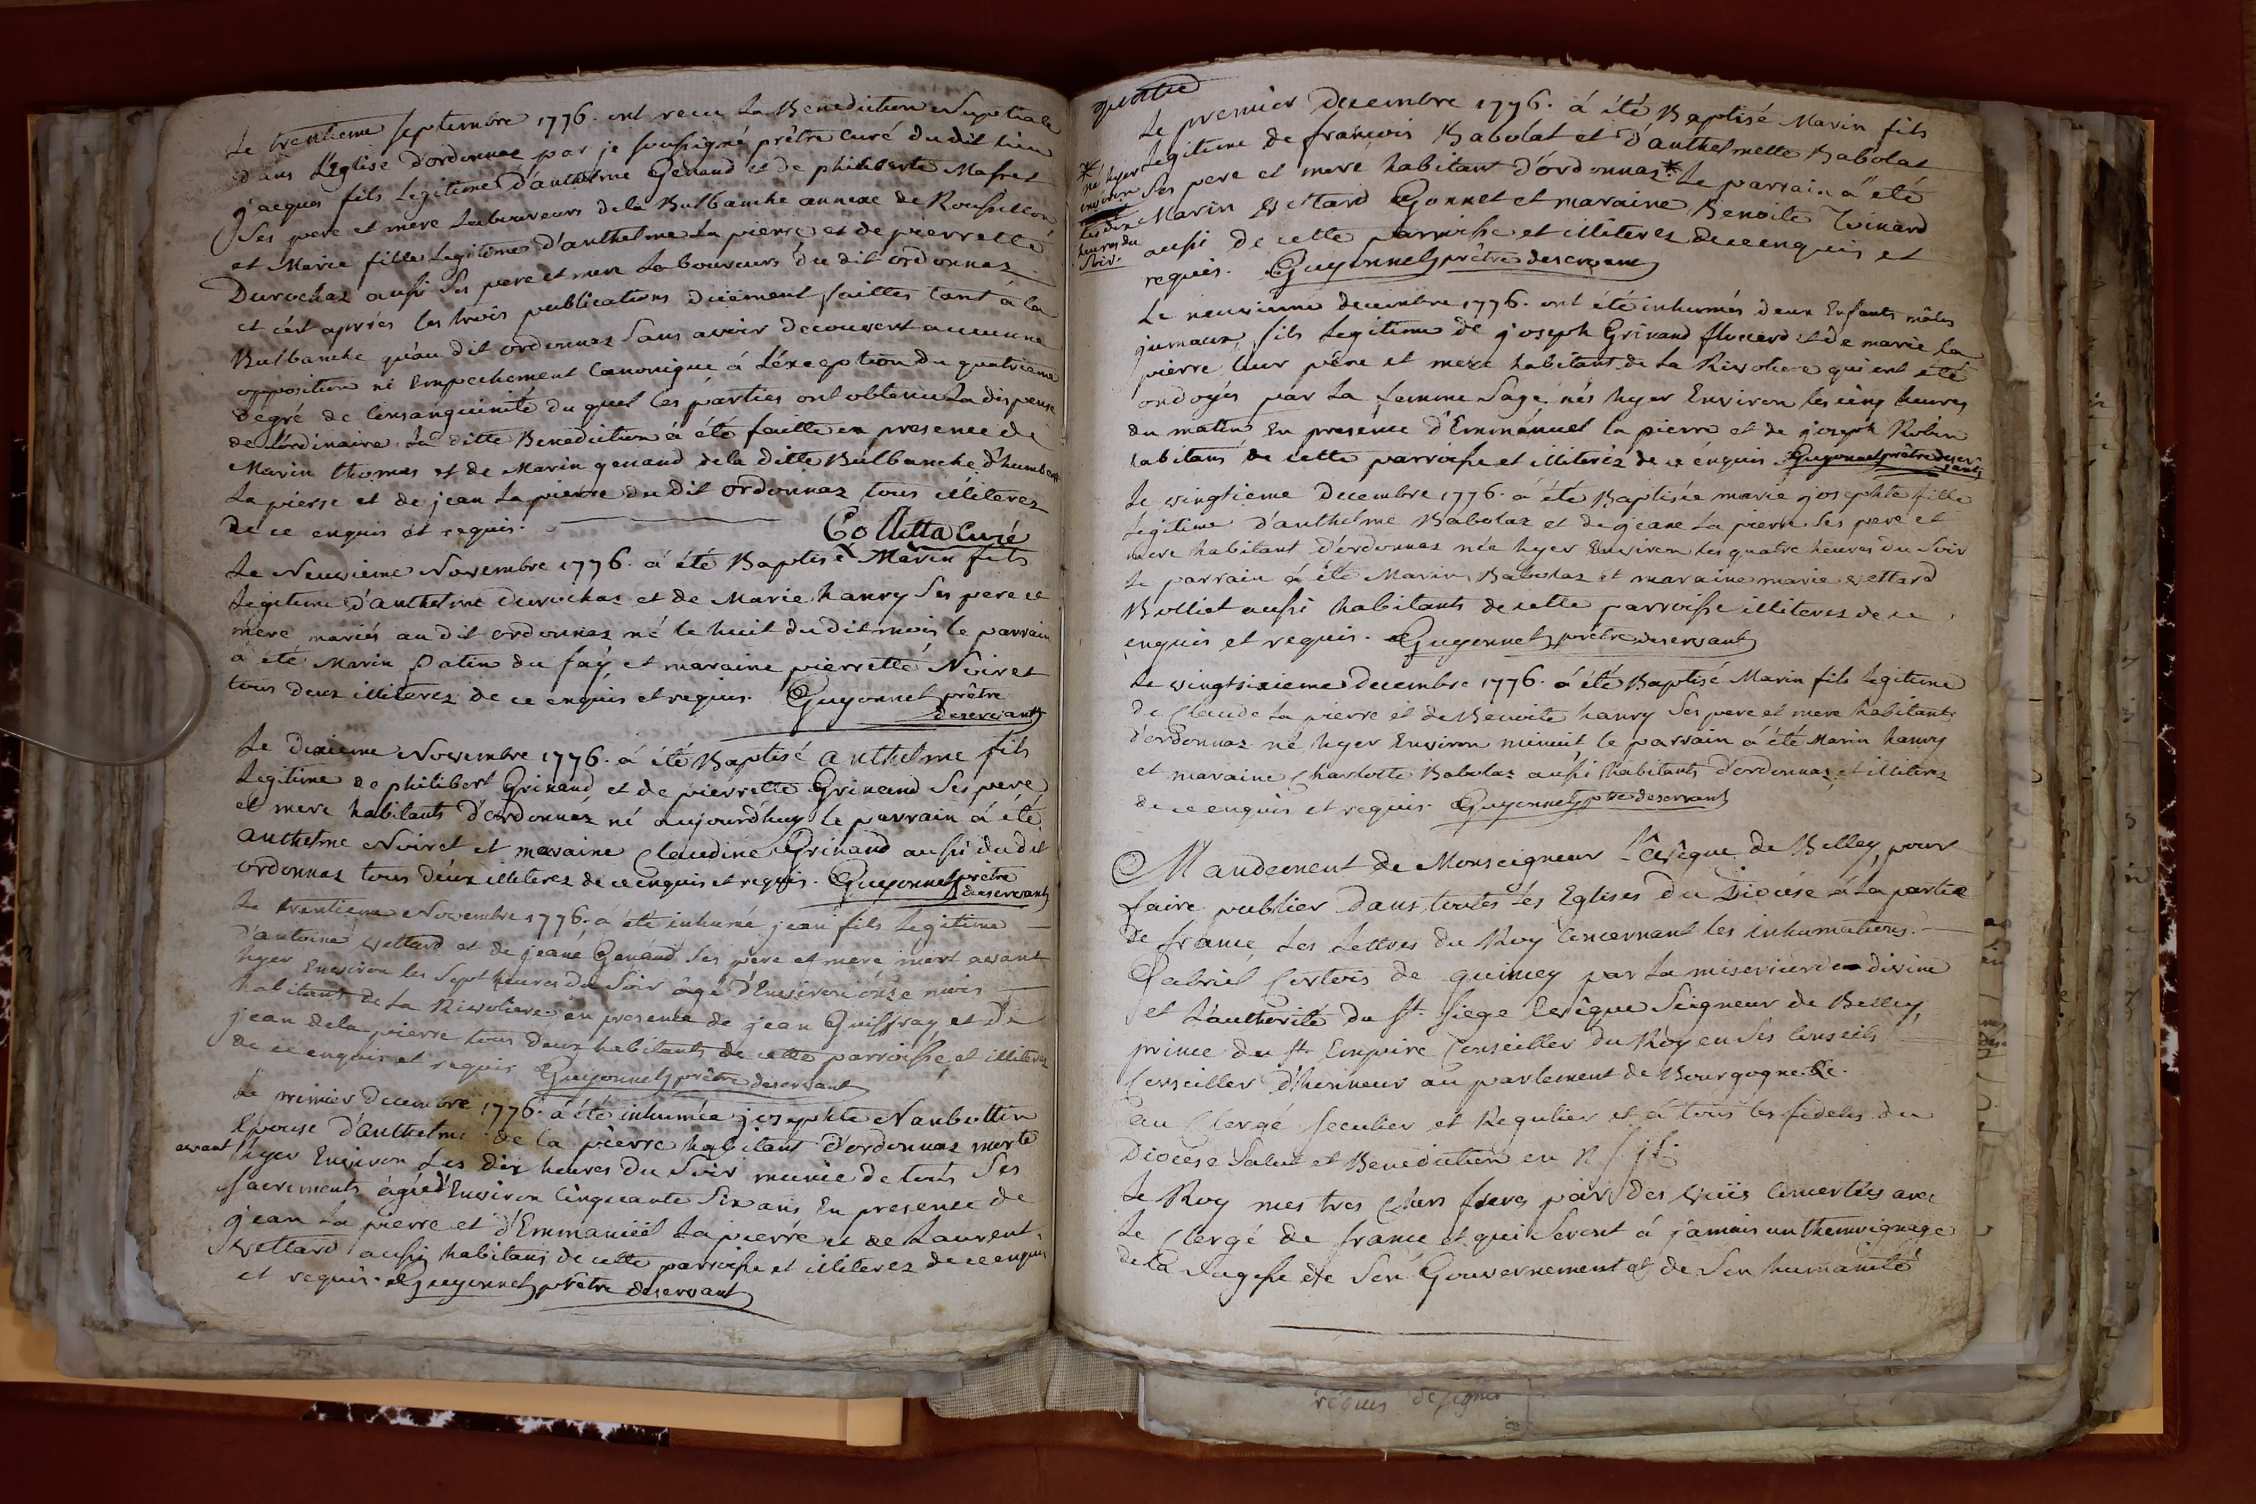 Le trentieme septembre 1776. ont recu La Benediction Nuptiale
dans L'Eglise d'ordonnaz par je soussigné prêtre curé du dit lieu
jacques fils Legitime d'anthelme Genaud et de philiberte Mafret
Ses pere et mere Laboureurs de la Bulbanche annexe de Roussillon
et Marie fille Legitime d'anthelme La pierre et de pierrette
Durochaz aussi Ses pere et mere Laboureurs du dit ordonnaz
et c'est aprés les trois publications duement faittes tant á la
Bulbanche qu'au dit ordonnaz Sans avoir decouvert aucune
opposition ni Empechement Canonique á L'éxception du quatrieme
degré de Consanguinité du quel les parties ont obtenu La dispense
de L'ordinaire. La ditte Benediction á été faitte en presence de
Marin thomas et de Marin genaud de la ditte Bulbanche d'humbert
La pierre et de jean La pierre du dit ordonnaz tous illiterez
de ce enquis et requis. Colletta Curé
Le Neuvieme Novembre 1776. á été Baptisé Marin fils
Legitime d'anthelme Durochaz et de Marie hanry Ses pere et
mere mariés au dit ordonnaz né le huit du dit mois le parrain
á été Marin patin du faÿ et maraine pierrette Noiret
tous deux illiterez de ce enquis et requis. Guyonnet prêtre
deservant
Le dixieme Novembre 1776. á été Baptisé Anthelme fils
Legitime de philibert Grinand et de pierrette Grinand Ses pere
et mere habitants d'ordonnaz né aujourd'huy le parrain á été
anthelme Noiret et maraine Claudine Grinand aussi du dit
ordonnaz tous deux illiterez de ce enquis et requis. Guyonnet prêtre
deservant
Le trentieme Novembre 1776. á été inhumé jean fils Legitime
d'antoine vettard et de jeane Genaud Ses pere et mere mort avant
hyer Environ les Sept heures du Soir âgé d'Environ onze mois
habitant de La Rivoliere en presence de jean Guiffray et de
jean de la pierre tous deux habitants de cette parroisse et illiterez
de ce enquis et requis Guyonnet prêtre deservant
Le premier Decembre 1776. á été inhumée josephte Nanbottin
Epouse d'anthelme de la pierre habitant d'ordonnaz morte
avant hyer Environ Les Dix heures du Soir munie de tous Ses
Sacrements âgée d'Environ Cinquante Six ans En presence de
jean La pierre et d'Emmanüel La pierre et de Laurent
vettard aussi habitans de cette parroisse et illiterez de ce enquis
et requis. Guyonnet prêtre deservant
Le premier Decembre 1776. á été Baptisé Marin fils
Legitime de francois Babolat et d'anthelmette Babolat
Ses pere et mere habitant d'ordonnaz * Le parrain á été
* né hyer
environ
les dix
heures du
Soir.
Marin vettard Gonnet et maraine Benoite Tvinard
aussi de cette parroisse et illiterez de ce enquis et
requis. Guyonnet prêtre deservant
Le neuvieme decembre 1776. ont été inhumés deux Enfants mâles
jumeaux, fils Legitime de joseph Grinand et de marie la
pierre Leur pére et mere habitants de La Rivoliere qui ont été
ondoyés par La femme Sage, nés hyer Environ les cinq heures
du matin En presence d'Emmanuel la pierre et de joseph Robin
habitans de cette parroisse et illiterés de ce énquis Guyonnet prêtre deser-
vant
Le vingtieme Decembre 1776. á été Baptisée marie josephte fille
Legitime d'anthelme Babolaz et de jeane La pierre Ses pere et
mere habitant d'ordonnaz née hyer Environ Les quatre heures du Soir
Le parrain á été Marin Babolaz et maraine marie vettard
Bolliet aussi habitants de cette parroisse illiterez de ce
enquis et requis. Guyonnet prêtre deservant
Le vingtsixieme Decembre 1776. á été Baptisé Marin fils Legitime
de Claude La pierre et de Benoite hanry Ses pere et mere habitants
d'ordonnaz né hyer Environ minuit le parrain á été Marin hanry
et maraine Charlotte Babolaz aussi habitants d'ordonnaz et illiterez
de ce enquis et requis. Guyonnet ptre deservant
Mandement de Monseigneur L'Evêque de Belley pour
faire publier dans toutes les Eglises du Diocése á La partie
De france, Les Lettres du Roy Concernant les inhumations.
Gabriel Cortois de quincey par La misericorde divine
et L'authorité du St. Siege Evêque Seigneur de Belley,
prince du St. Empire Conseiller du Roy en Ses Conseils
Conseiller d'honneur au parlement de Bourgogne &c.
au Clergé Seculier et Regulier et á tous les fideles du
Diocese Salut et Benediction en N. S. J. C.
Le Roy mes tres Chers freres par des vuës Concertées avec
Le Clergé de france et qui Seront á jamais un themoignage
de La Sagesse de Son Gouvernement et de Son humanité
requis de signer